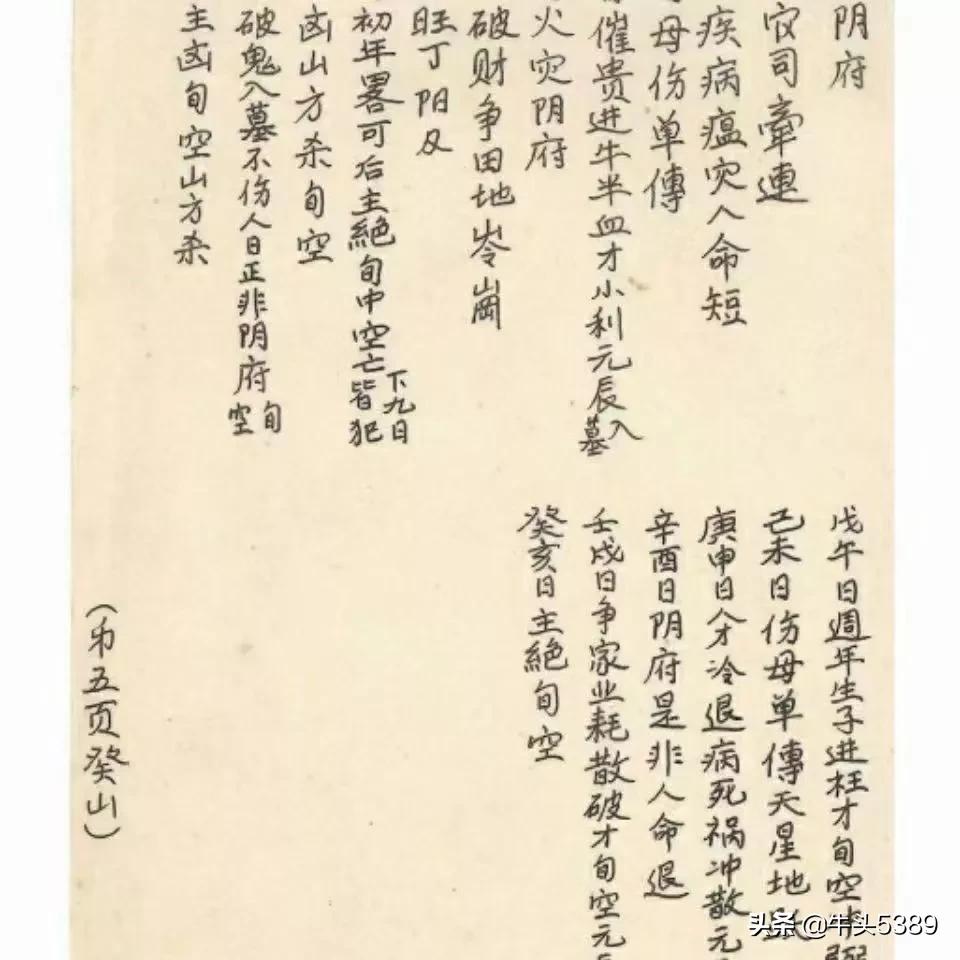 阴府
官司牵連
疾病瘟灾人命短
母伤单傳
催贵进牛羊血才小利元辰入墓
火灾阴府
破财争田地岺崗
旺丁阳及
初年畧可后主絕旬中空亡皆犯
下九日
凶山方杀旬空
破鬼入墓不伤人日正非阴府旬空
主凶旬空山方杀
戊午日週年生子进枉才旬空
己未日伤母单傳天星地
庚申日人才冷退病死祸冲散元
辛酉日阴府是非人命退
壬戌日争家业耗散破才旬空元
癸亥日主絕旬空
(弟五页癸山)
头条 @牛头5389